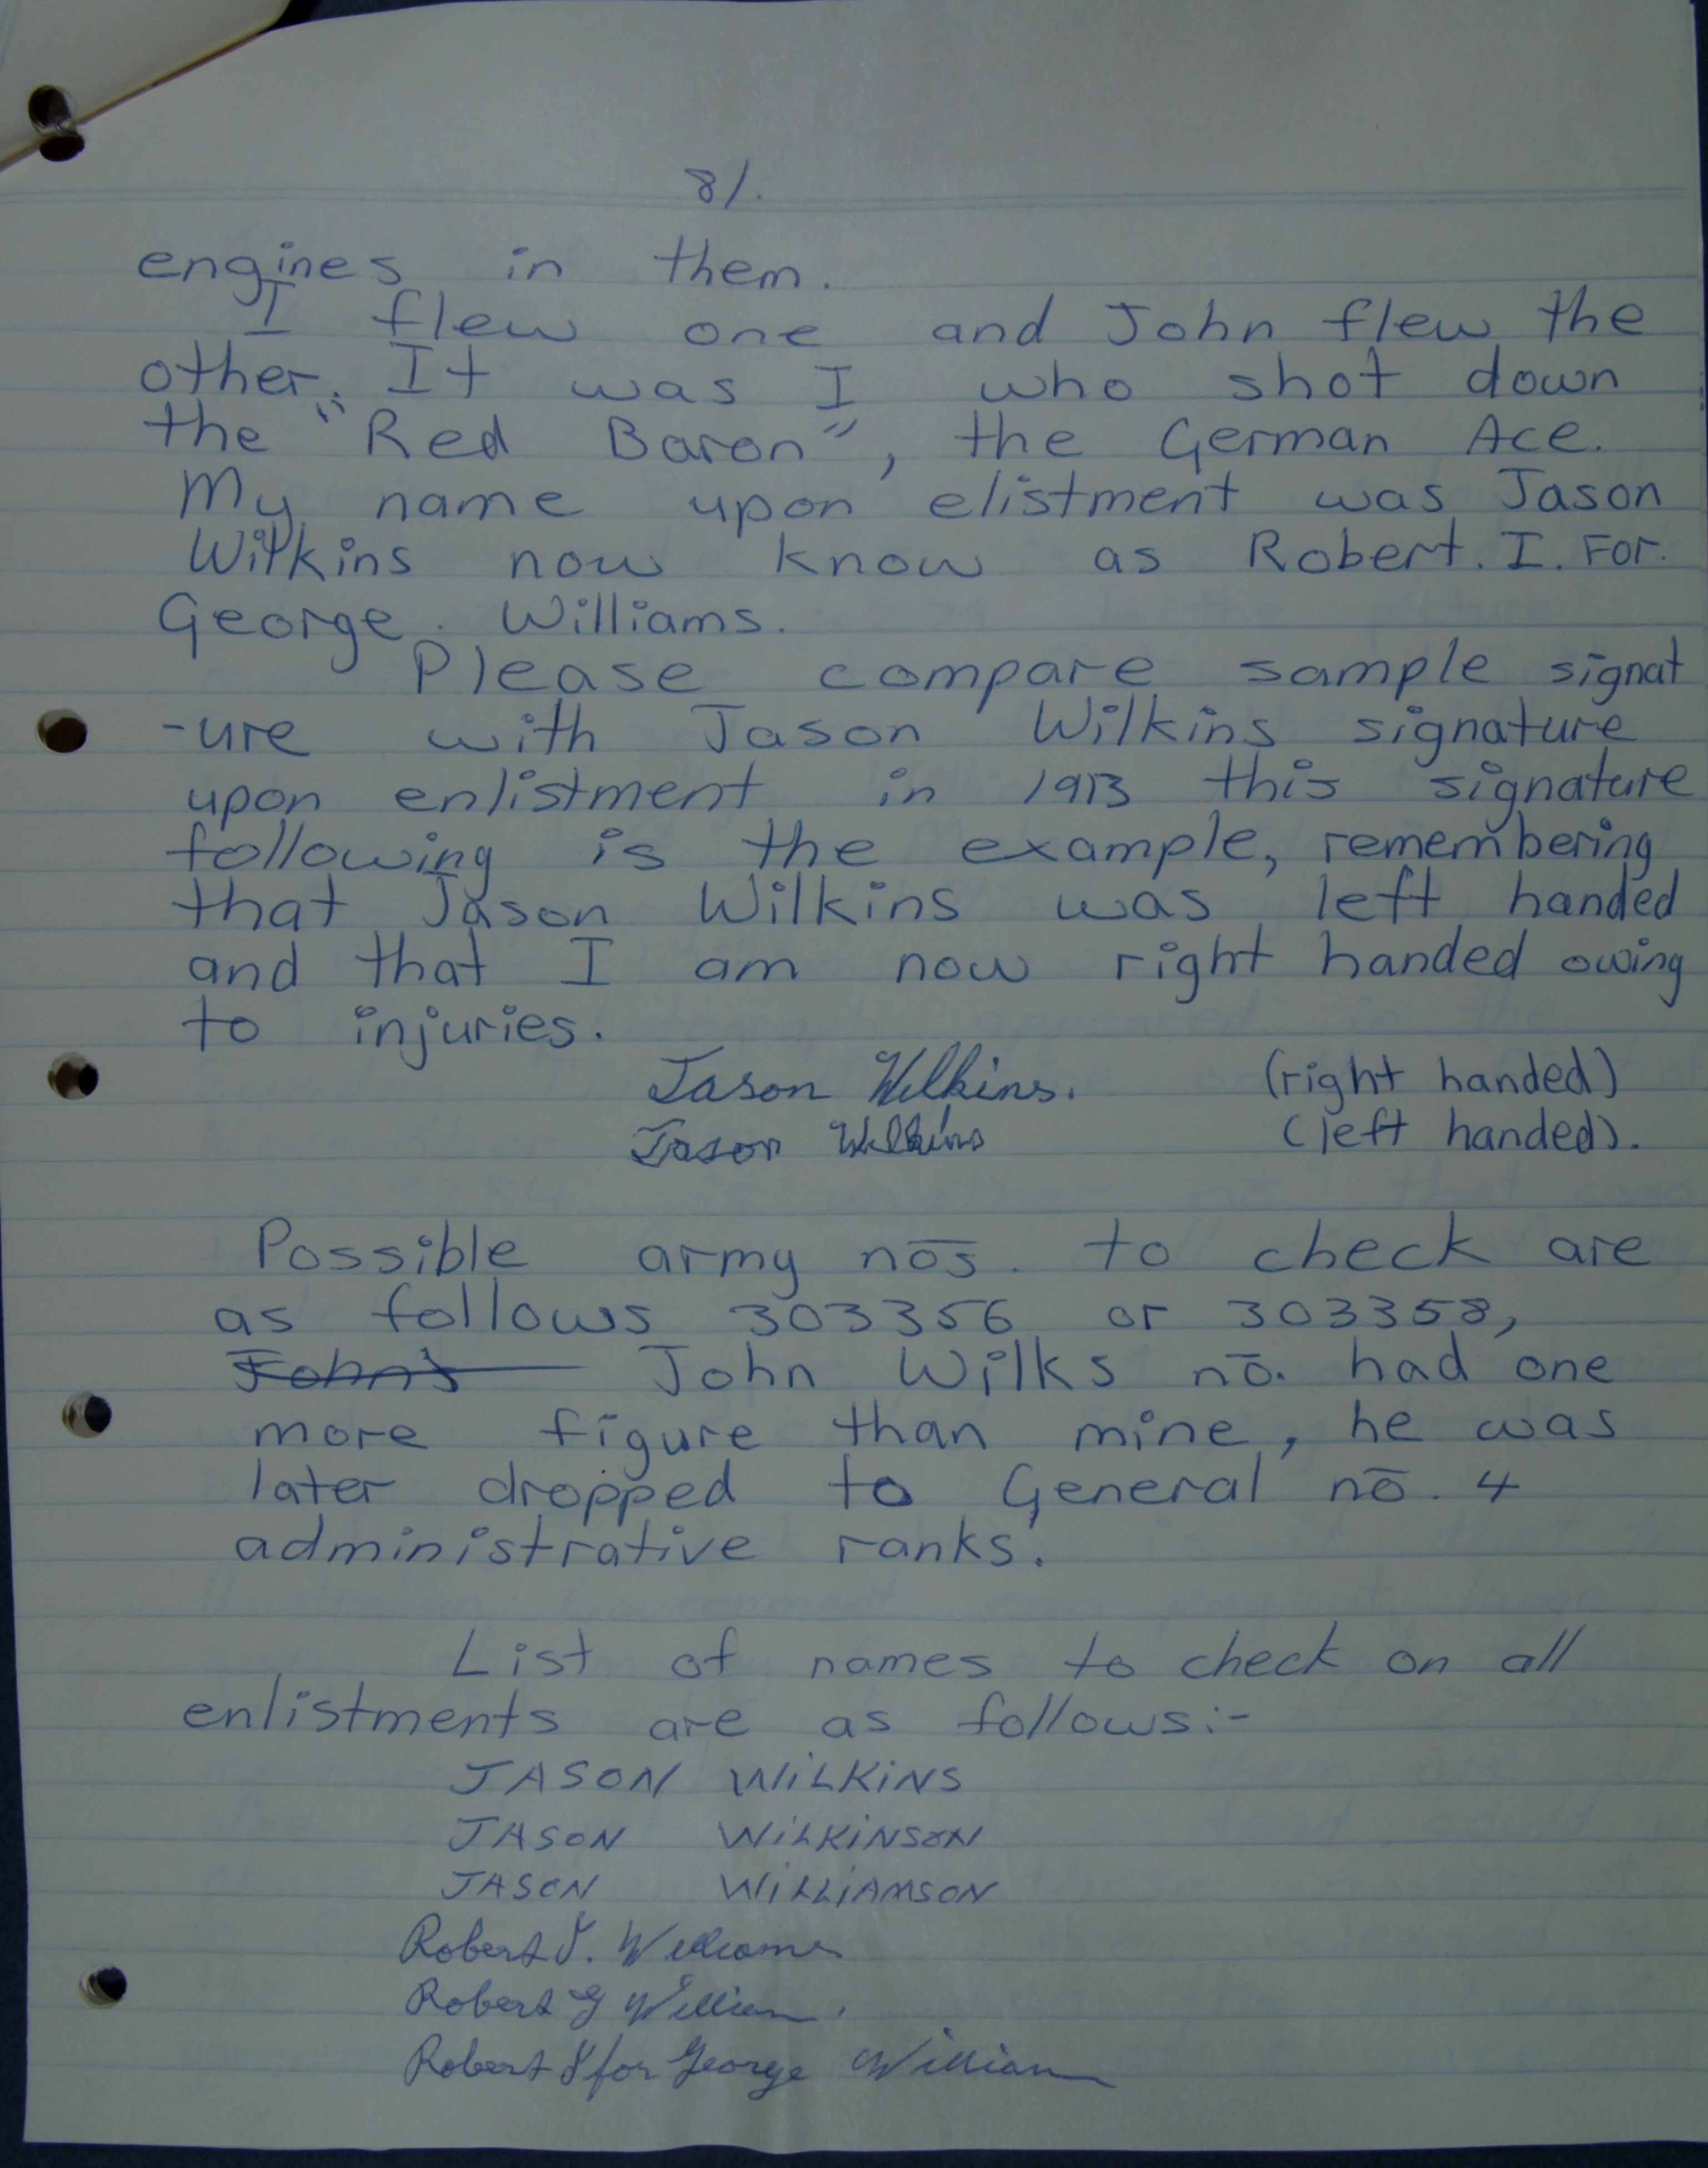 8/.
engines in them.
I flew one and John flew the
other. It was I who shot down
the "Red Baron", the German Ace.
My name upon elistment was Jason
Wilkins now know as Robert. I. For.
George. Williams.
Please compare sample signat
-ure with Jason Wilkins signature
upon enlistment in 1913 this signature
following is the example, remembering
that Jason Wilkins was left handed
and that I am now right handed owing
to injuries.
Jason Wilkins. (right handed)
Jason Wilkins (left handed).
Possible army nos. to check are
as follows 303356 or 303358,
John's John Wilks no. had one
more figure than mine, he was
later dropped to General no. 4
administrative ranks.
List of names to check on all
enlistments are as follows:-
JASON WILKINS
JASON WILKINSON
JASON WILLIAMSON
Robert I. Williams
Robert G William.
Robert I for George William